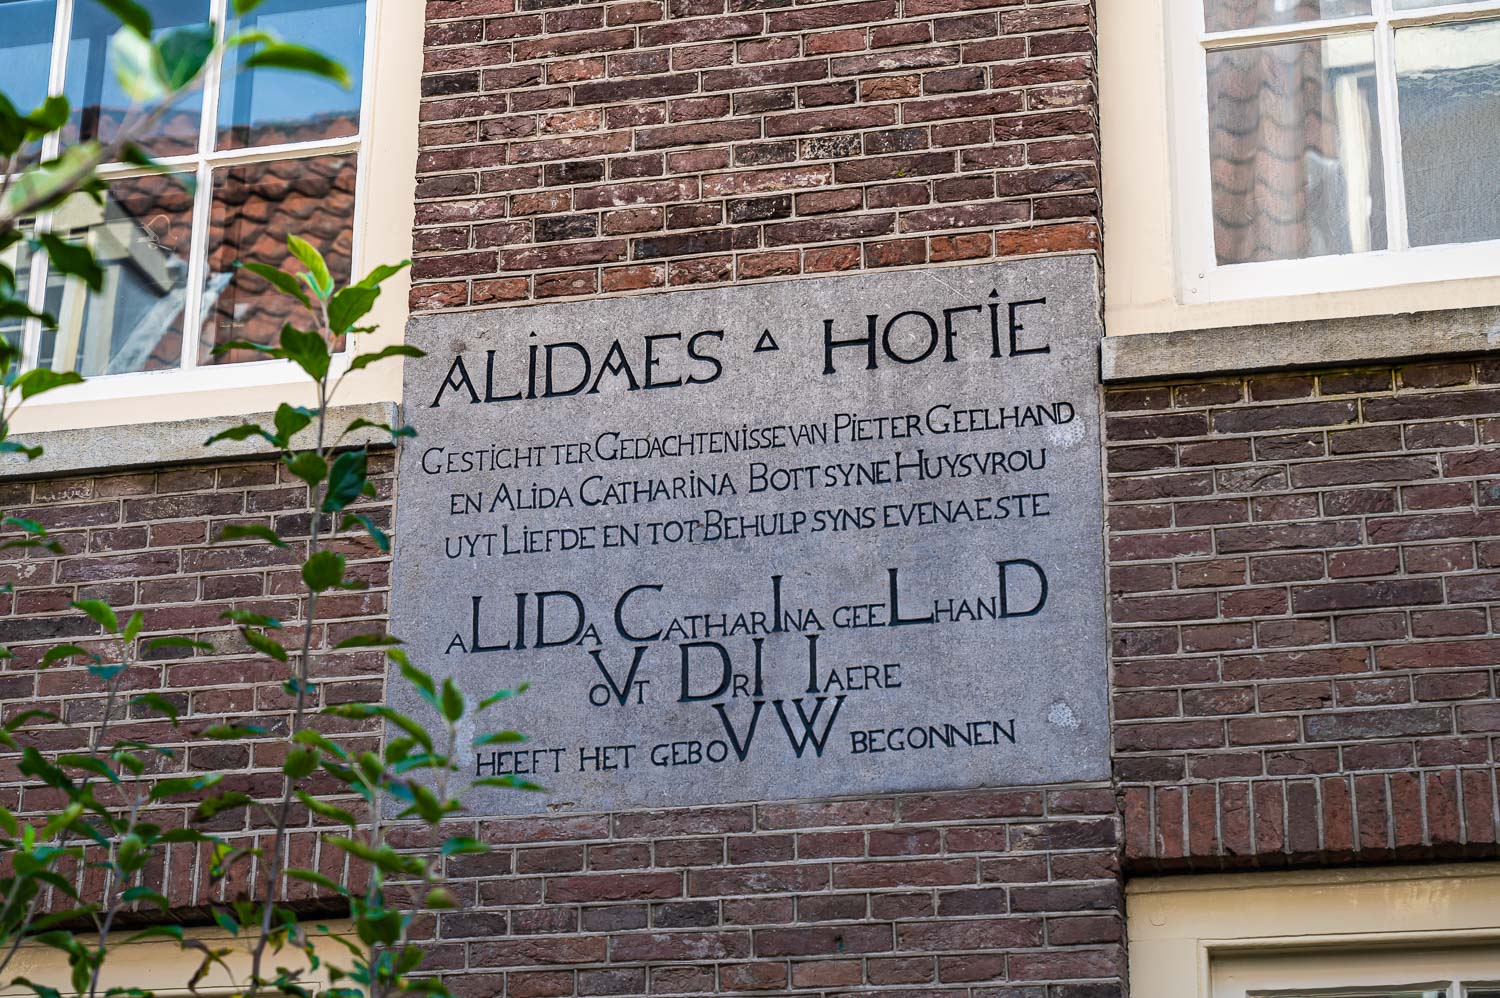 ALIDAES ▵ HOFIE
GESTICHT TER GEDACHTENISSE VAN PIETER GEELHAND
EN ALIDA CATHARINA BOTT SYNE HUYSVROU
UYT LIEFDE EN TOT BEHULP SYNS EVENAESTE
aLIDa CatharIna geeLhanD
oVt DrI Iaere
heeft het geboVW begonnen